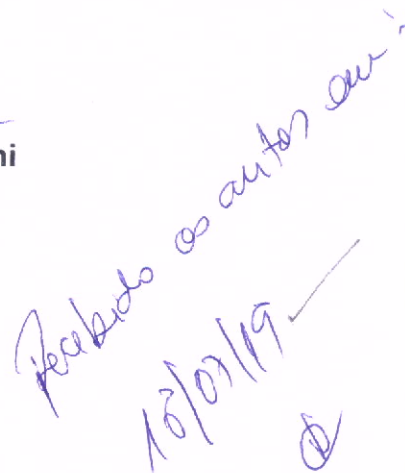 ni
Recebido os autos em:
18/07/19